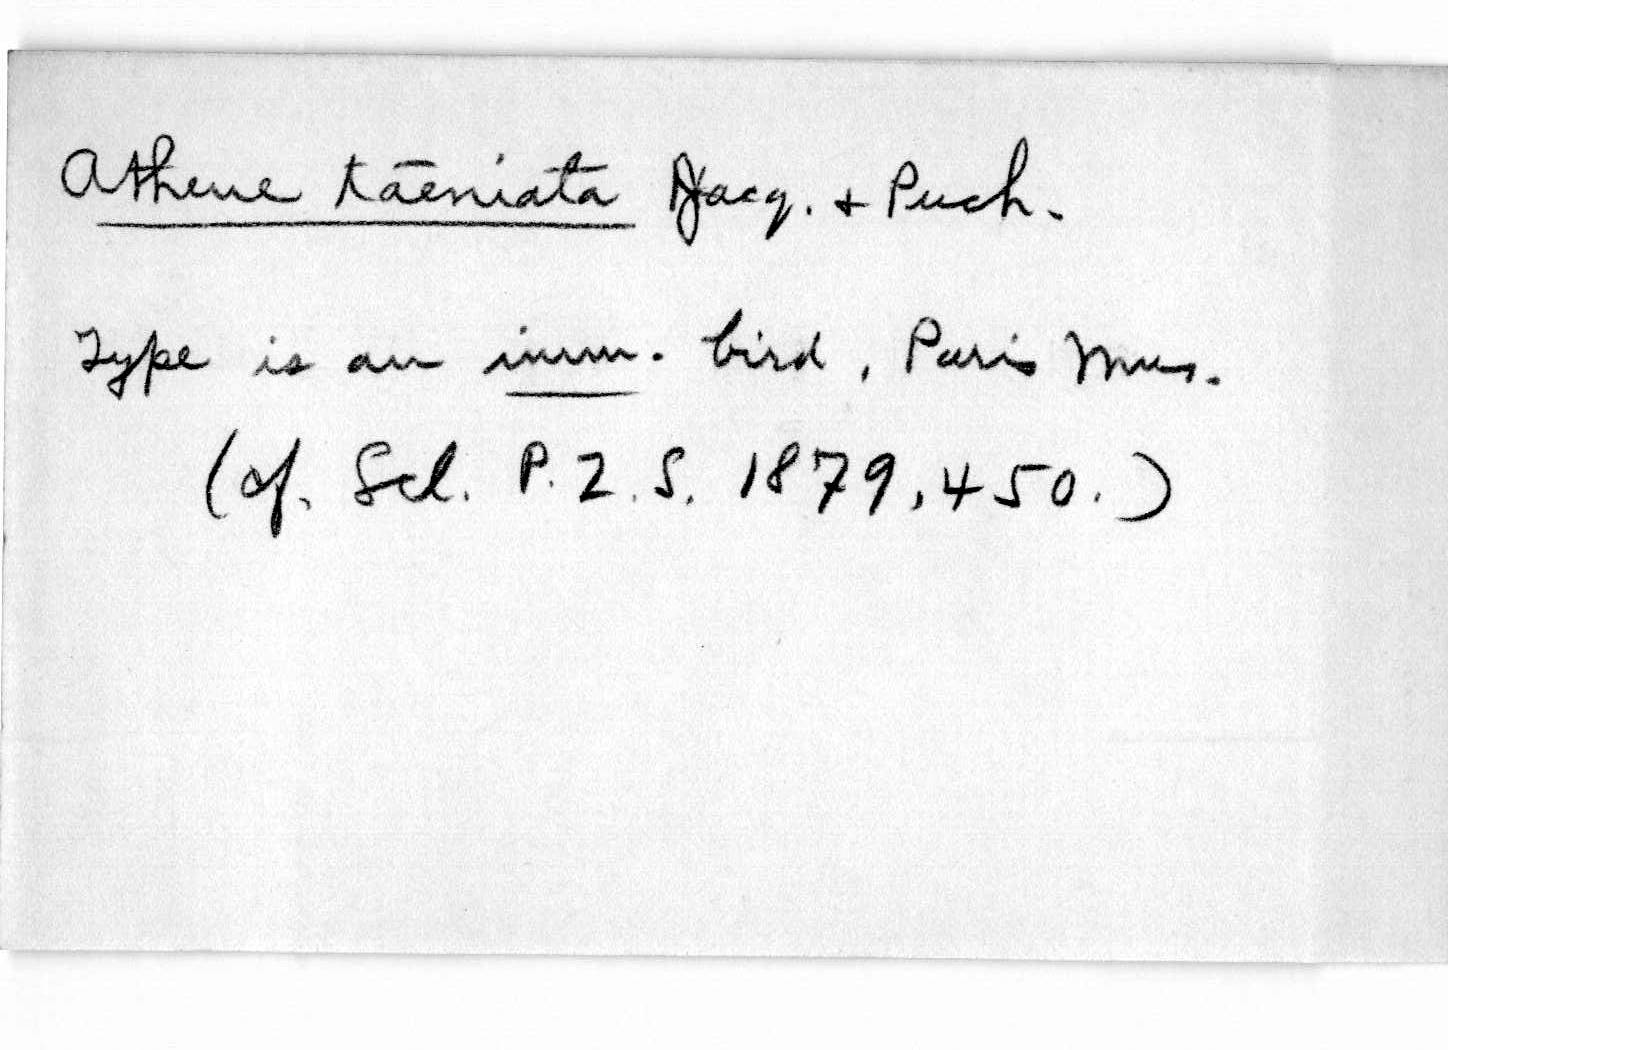 Athene taeniata Jacq. & Puch.
Type is an imm. bird, Paris Mus.
(cf. Scl. P.Z.S. 1879, 450.)